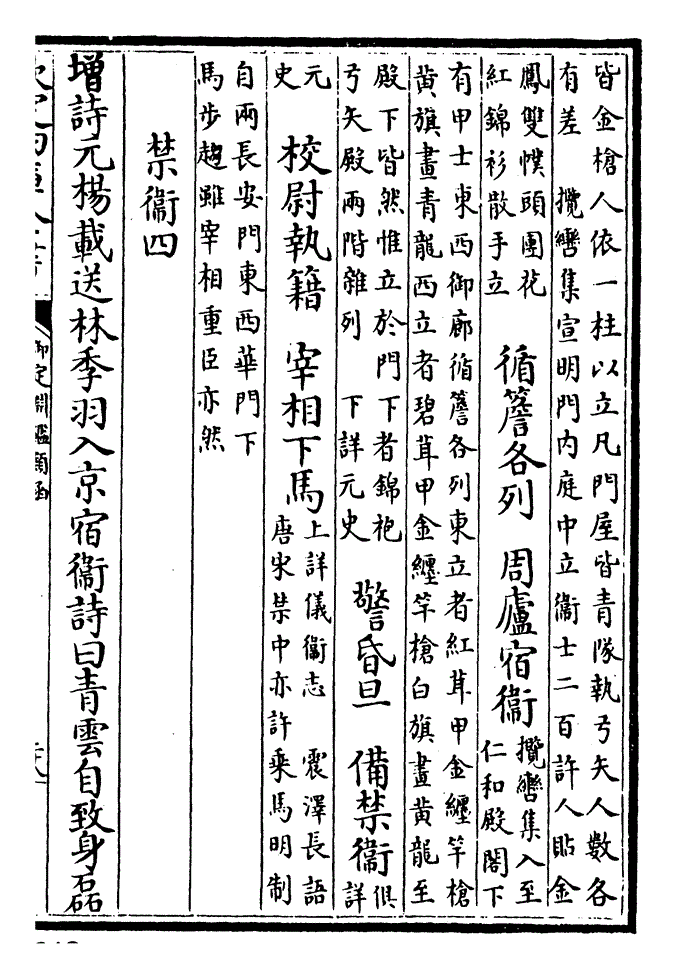 皆金槍人依一柱以立凡門屋皆青隊執弓矢人數各
有差　攬轡集宣明門内庭中立衞士二百許人貼金
鳳雙幞頭團花
紅錦衫散手立
循簷各列　周廬宿衞
攬轡集入至
仁和殿閣下
有甲士東西御廊循簷各列東立者紅茸甲金纏竿槍
黄旗畫青龍西立者碧茸甲金纏竿槍白旗畫黄龍至
殿下皆然惟立於門下者錦袍
弓矢殿兩階雜列　下詳元史
警昏旦　備禁衞
俱
詳
元
史
校尉執籍　宰相下馬
上詳儀衞志　震澤長語
唐宋禁中亦許乗馬明制
自兩長安門東西華門下
馬步趨雖宰相重臣亦然
禁衞四
增詩元楊載送林季羽入京宿衞詩曰青雲自致身磊
御定淵鑑類函